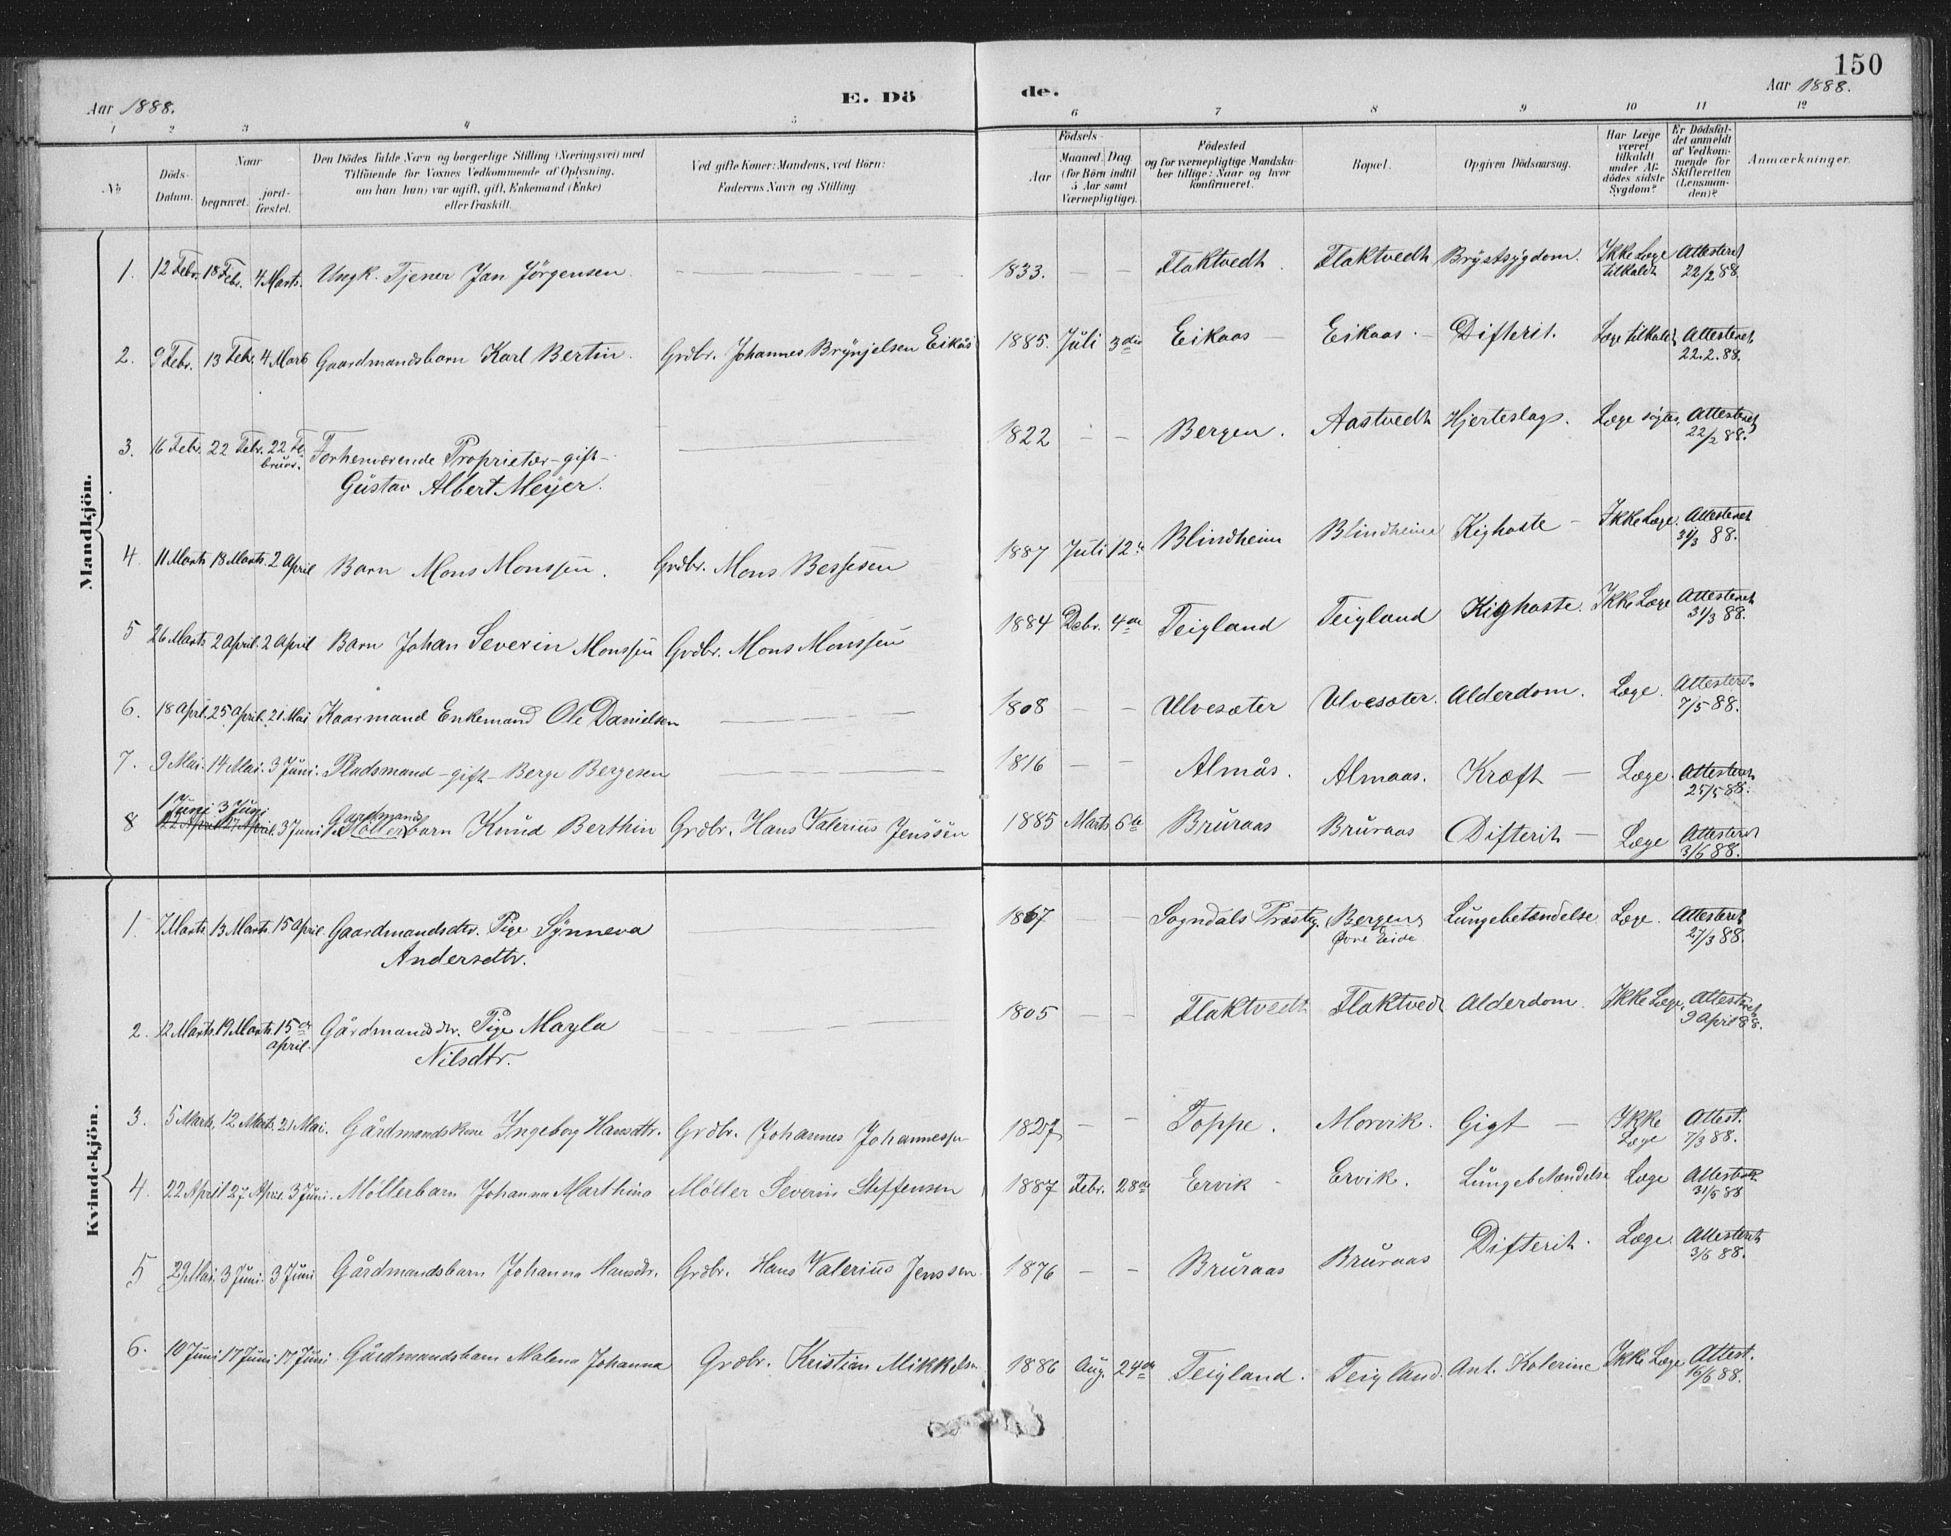 150
Aar 1888. E. Dö de. Aar 1888.
1 2 3 4 5 6 7 8 9 10 11 12
No
Döds-Datum.
Naar
begravet.
jord-fæstet.
Den Dödes fulde Navn og borgerlige Stilling (Næringsvei) med
Tilföiende for Voxnes Vedkommende af Oplysning,
om han (hun) var ugift, gift, Enkemand (Enke)
eller fraskilt.
Ved gifte Koner: Mandens, ved Börn:
Faderens Navn og Stilling
Födsels-
Aar
Maaned. Dag
(for Börn indtil
5 Aar samt
Værnepligtige).
Födested
og for værnepligtige Mandska-
ber tillige: Naar og hvor
konfirmeret.
Bopæl.
Opgiven Dödsaarsag.
Har Læge
været
tilkaldt
under Af-
dödes sidste
Sygdom?
Er Dödsfal-
det anmeldt
af Vedkom-
mende for
Skifteretten
(Lensman-
den)?
Anmærkninger.
Mandkjön.
1. 12 Febr. 18 Febr. 4 Marts. Ungk. Tjener Jan Jörgensen. — 1833. — — Flaktvedt. Flaktvedt Brÿstsÿgdom. Ikke Læge tilkaldt Attesteret 22/2 88.
2. 9 Febr. 13 Febr. 4 Marts Gaardmandsbarn Karl Bertin. Grdbr. Johannes Brÿnjelsen Eikås 1885. Juli 3die Eikaas — Eikaas. — Difterit. Læge tilkaldt Attesteret 22.2.88.
3. 16 Febr. 22 Febr. 22 Februar. Forhenværende Proprietær – gift –
Gustav Albert Meÿer. — 1822 — — Bergen. Aastvedt Hjerteslag. Læge søgtes Attesteret 22/2 88.
4 11 Marts 18 Marts. 2 April Barn Mons Monssen. Grdbr. Mons Bessesen 1887 Juli 12te Blindheim Blindheim Kighoste — Ikke Læge. Attesteret 31/3 88.
5 26 Marts 2 April. 2 April Barn Johan Severin Monssen Grdbr. Mons Monssen 1884 Debr. 4de Teigland Teigland Kighoste. Ikke Læge Attesteret 31/3 88.
6. 18 April. 25 April. 21. Mai Kaarmand Enkemand Ole Danielsen — 1808 — — Ulvesæter Ulvesæter. Alderdom. Læge. Attesteret 7/5 88.
7. 9 Mai. 14 Mai. 3 Juni. Pladsmand – gift – Berge Bergesen — 1816 — — Almås. Almaas. Kræft — Læge. Attesteret 25/5 88.
1 Juni 3 Juni Gardmands
8 22 April 27 April 3 Juni Möllerbarn Knud Berthin Grdbr. Hans Valerius Jenssen 1885 Marts 6te Bruraas Bruraas Difterit — Læge Attesteret 3/6 88.
Kvindekjön.
1. 7 Marts 13 Marts. 15 April. Gaardmandsdtr. Pige Sÿnneva
Andersdtr. — 1867 — — Sogndals Præstg. Bergens
Øvre Eide Lungebetændelse Læge. Attesteret 27/3 88.
2. 12 Marts 19 Marts. 15de April. Gårdmandsdtr. Pige Mayla
Nilsdtr. — 1805 — — Flaktvedt Flaktvedt Alderdom. Ikke Læge. Attesteret 9 April 88.
3. 5 Marts, 12 Marts. 21 Mai. Gårdmandskone Ingeborg Hansdtr. Grdbr. Johannes Johannessen 1827 — — Toppe. Morvik. Gigt — Ikke Læge Attest. 7/3 88.
4. 22 April 27 April. 3 Juni. Möllerbarn Johanna Marthina Möller Severin Steffensen 1887 Febr. 28de Ervik — Ervik. Lungebetændelse Læge Attesteret 31/5 88
5 29 Mai. 3 Juni. 3 Juni Gårdmandsbarn Johanna Hansdtr. Grdbr. Hans Valerius Jenssen 1876 — — Bruraas Bruraas Difterit. Læge. Attesteret 3/6 88.
6. 10 Juni 17 Juni 17 Juni Gårdmandsbarn Malena Johanna Grdbr. Kristian Mikkelsen 1886 Aug. 24de Teigland. Teigland. Ant. Kolerine Ikke Læge Attest. 16/6 88.